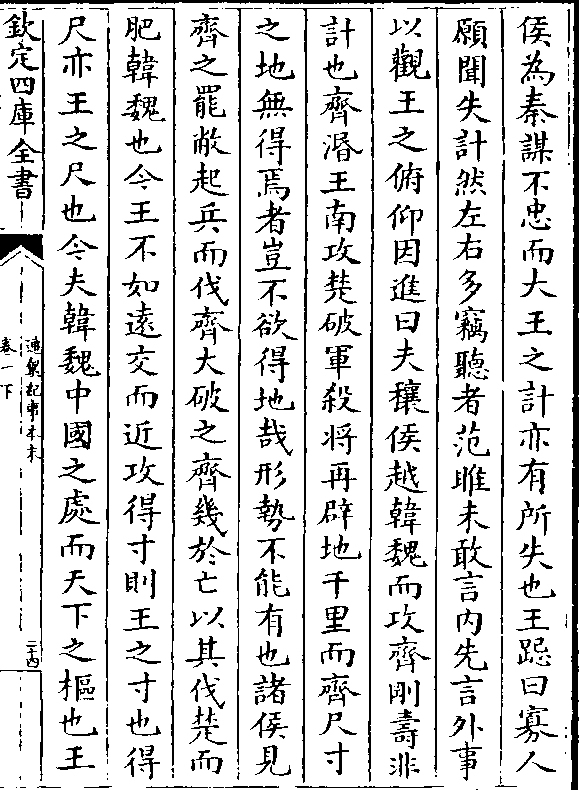 侯為秦謀不忠而大王之計亦有所失也王跽曰寡人
願聞失計然左右多竊聽者范雎未敢言内先言外事
以觀王之俯仰因進曰夫穰侯越韓魏而攻齊剛壽非
計也齊湣王南攻楚破軍殺将再辟地千里而齊尺寸
之地無得焉者豈不欲得地哉形勢不能有也諸侯見
齊之罷敝起兵而伐齊大破之齊幾於亡以其伐楚而
肥韓魏也今王不如逺交而近攻得寸則王之寸也得
尺亦王之尺也今夫韓魏中國之處而天下之樞也王
欽定四庫全書
通鑑紀事本末
卷一下
二十四